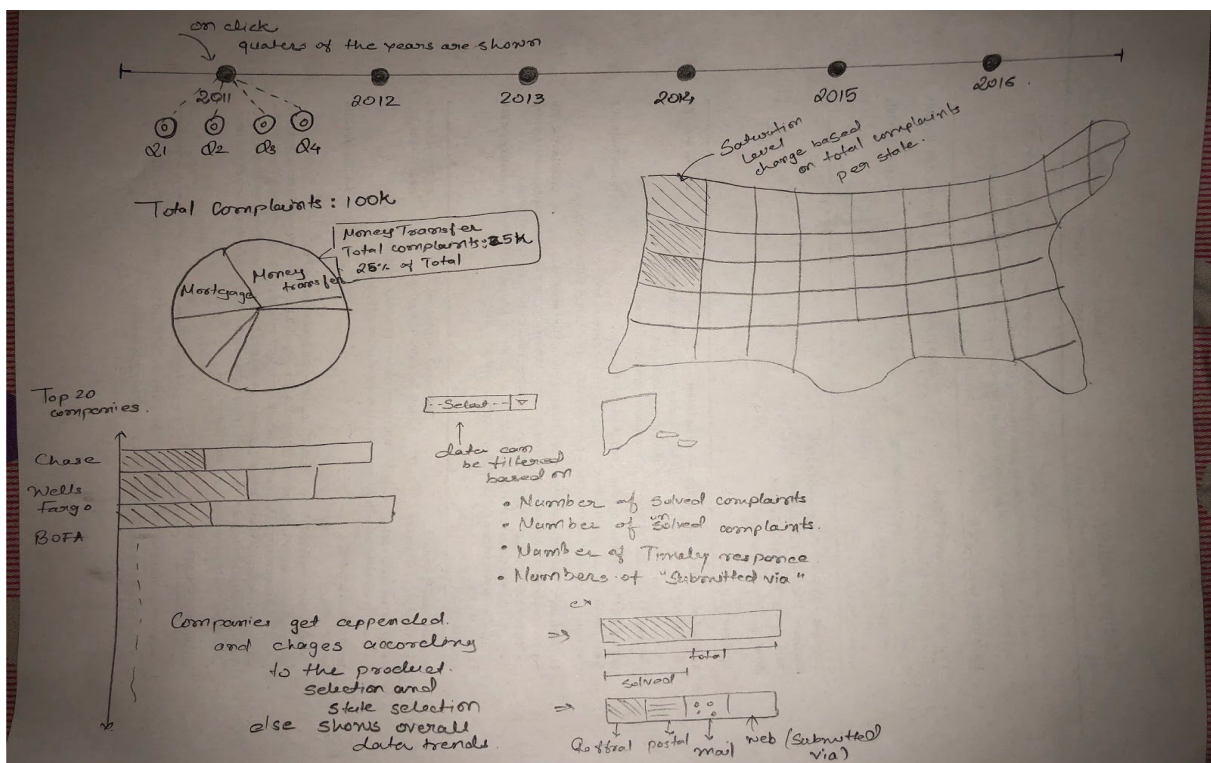 on click
quaters of the years are shown
2011
2012
2013
2014
2015
2016
Q1 Q2 Q3 Q4
Saturation
level
change based
on total complaints
per state.
Total Complaints : 100K
Money Transfer
Total complaints : 25K
25% of Total
Mortgage
Money
transfer
Top 20
companies.
Chase
Wells
Fargo
BOFA
--Select--
data can
be filtered
based on
• Number of Solved complaints
• Number of unsolved complaints.
• Number of Timely responce
• Numbers of "Submitted via"
Companies get appended.
and chages according
to the product.
selection and
state selection
else shows overall
data trends.
ex
⇒
total
solved
⇒
postal
mail
web (Submitted
via)